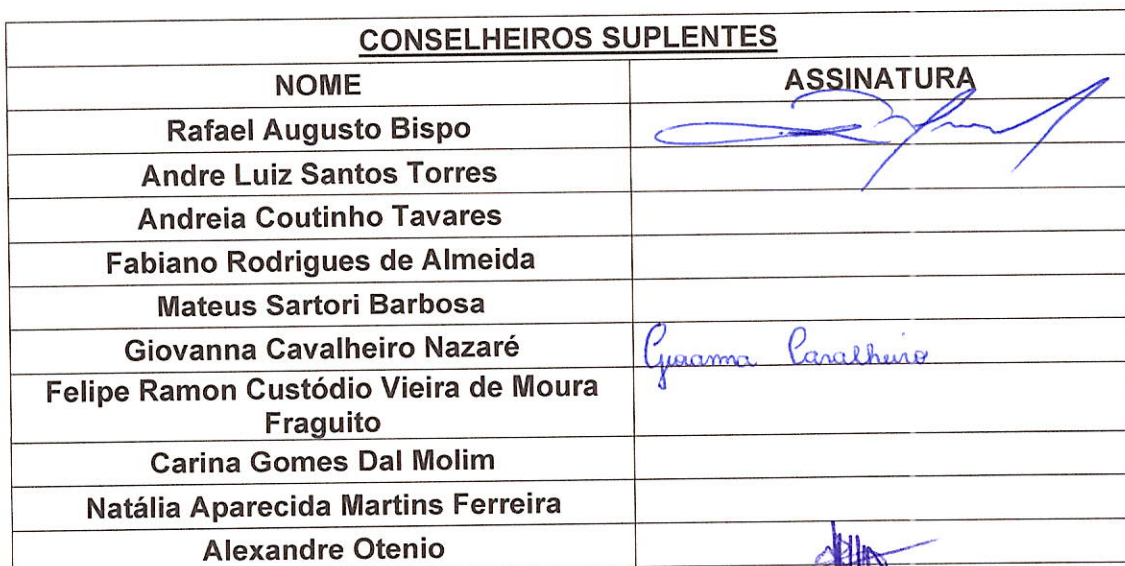 CONSELHEIROS SUPLENTES
NOME ASSINATURA
Rafael Augusto Bispo
Andre Luiz Santos Torres
Andreia Coutinho Tavares
Fabiano Rodrigues de Almeida
Mateus Sartori Barbosa
Giovanna Cavalheiro Nazaré Giovanna Cavalheiro
Felipe Ramon Custódio Vieira de Moura
Fraguito
Carina Gomes Dal Molim
Natália Aparecida Martins Ferreira
Alexandre Otenio